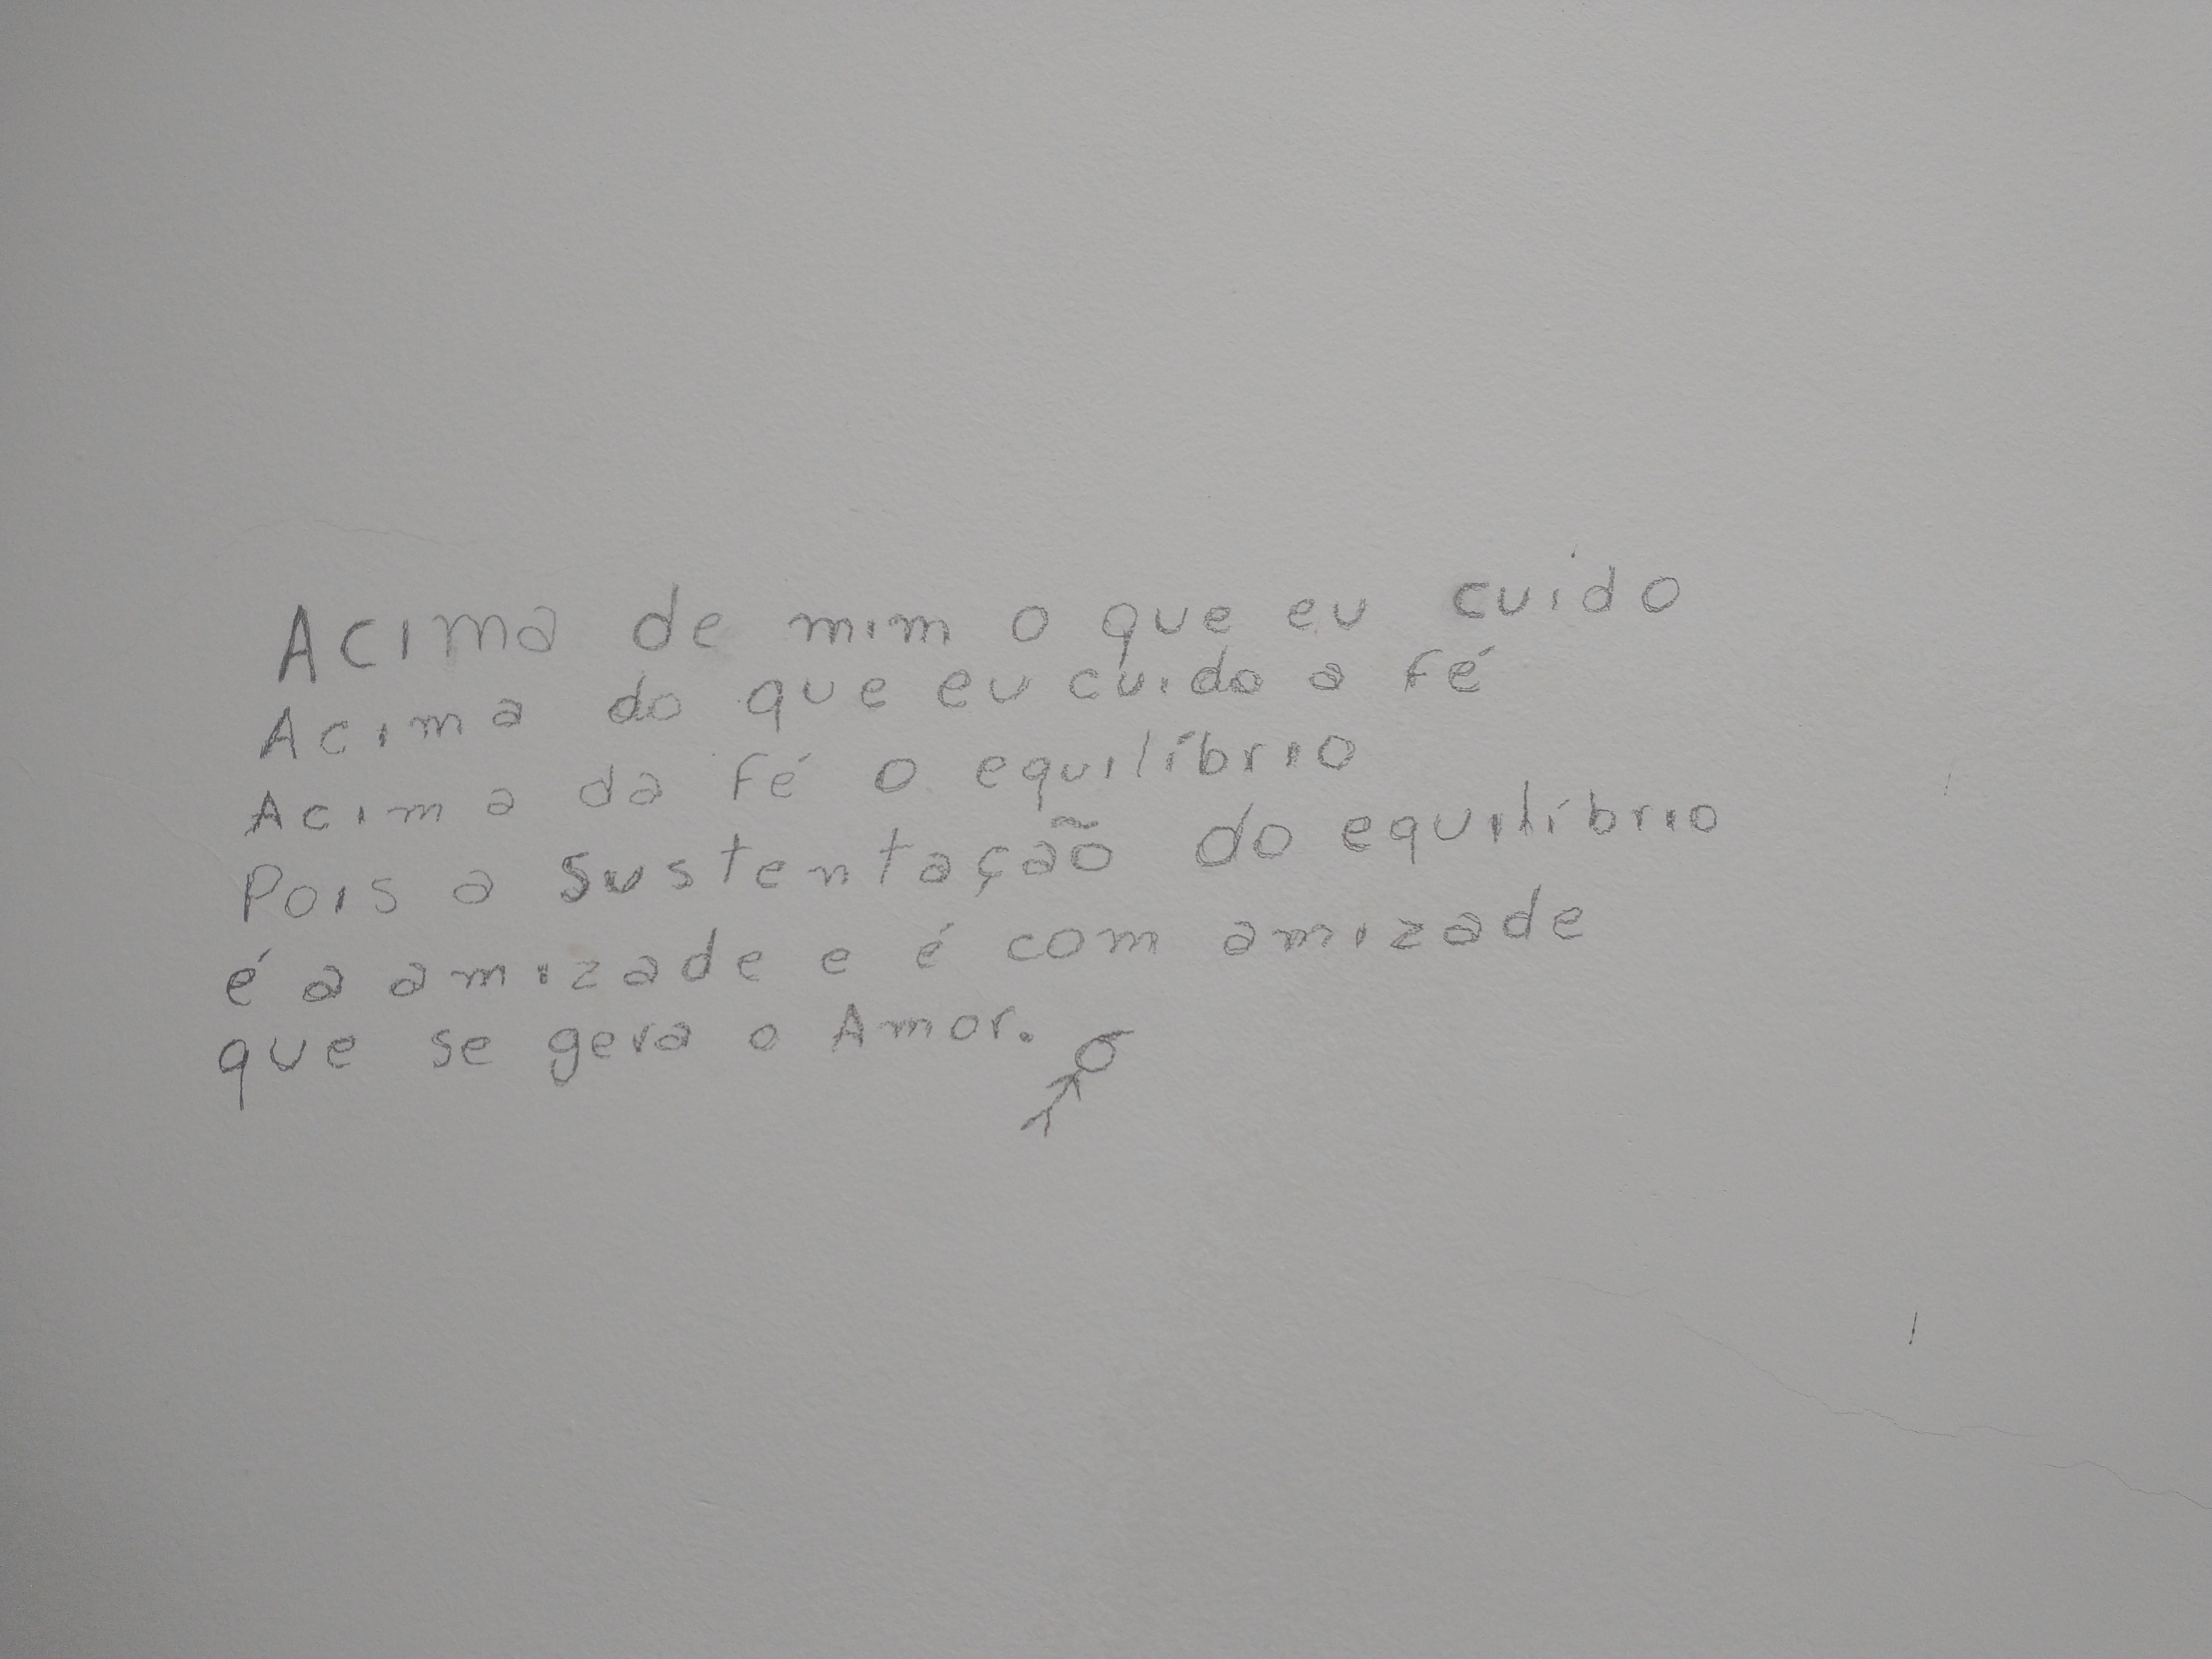 Acima de mim o que eu cuido
Acima do que eu cuido a fé
Acima da fé o equilíbrio
Pois a sustentação do equilíbrio
é a amizade e é com amizade
que se gera o Amor.